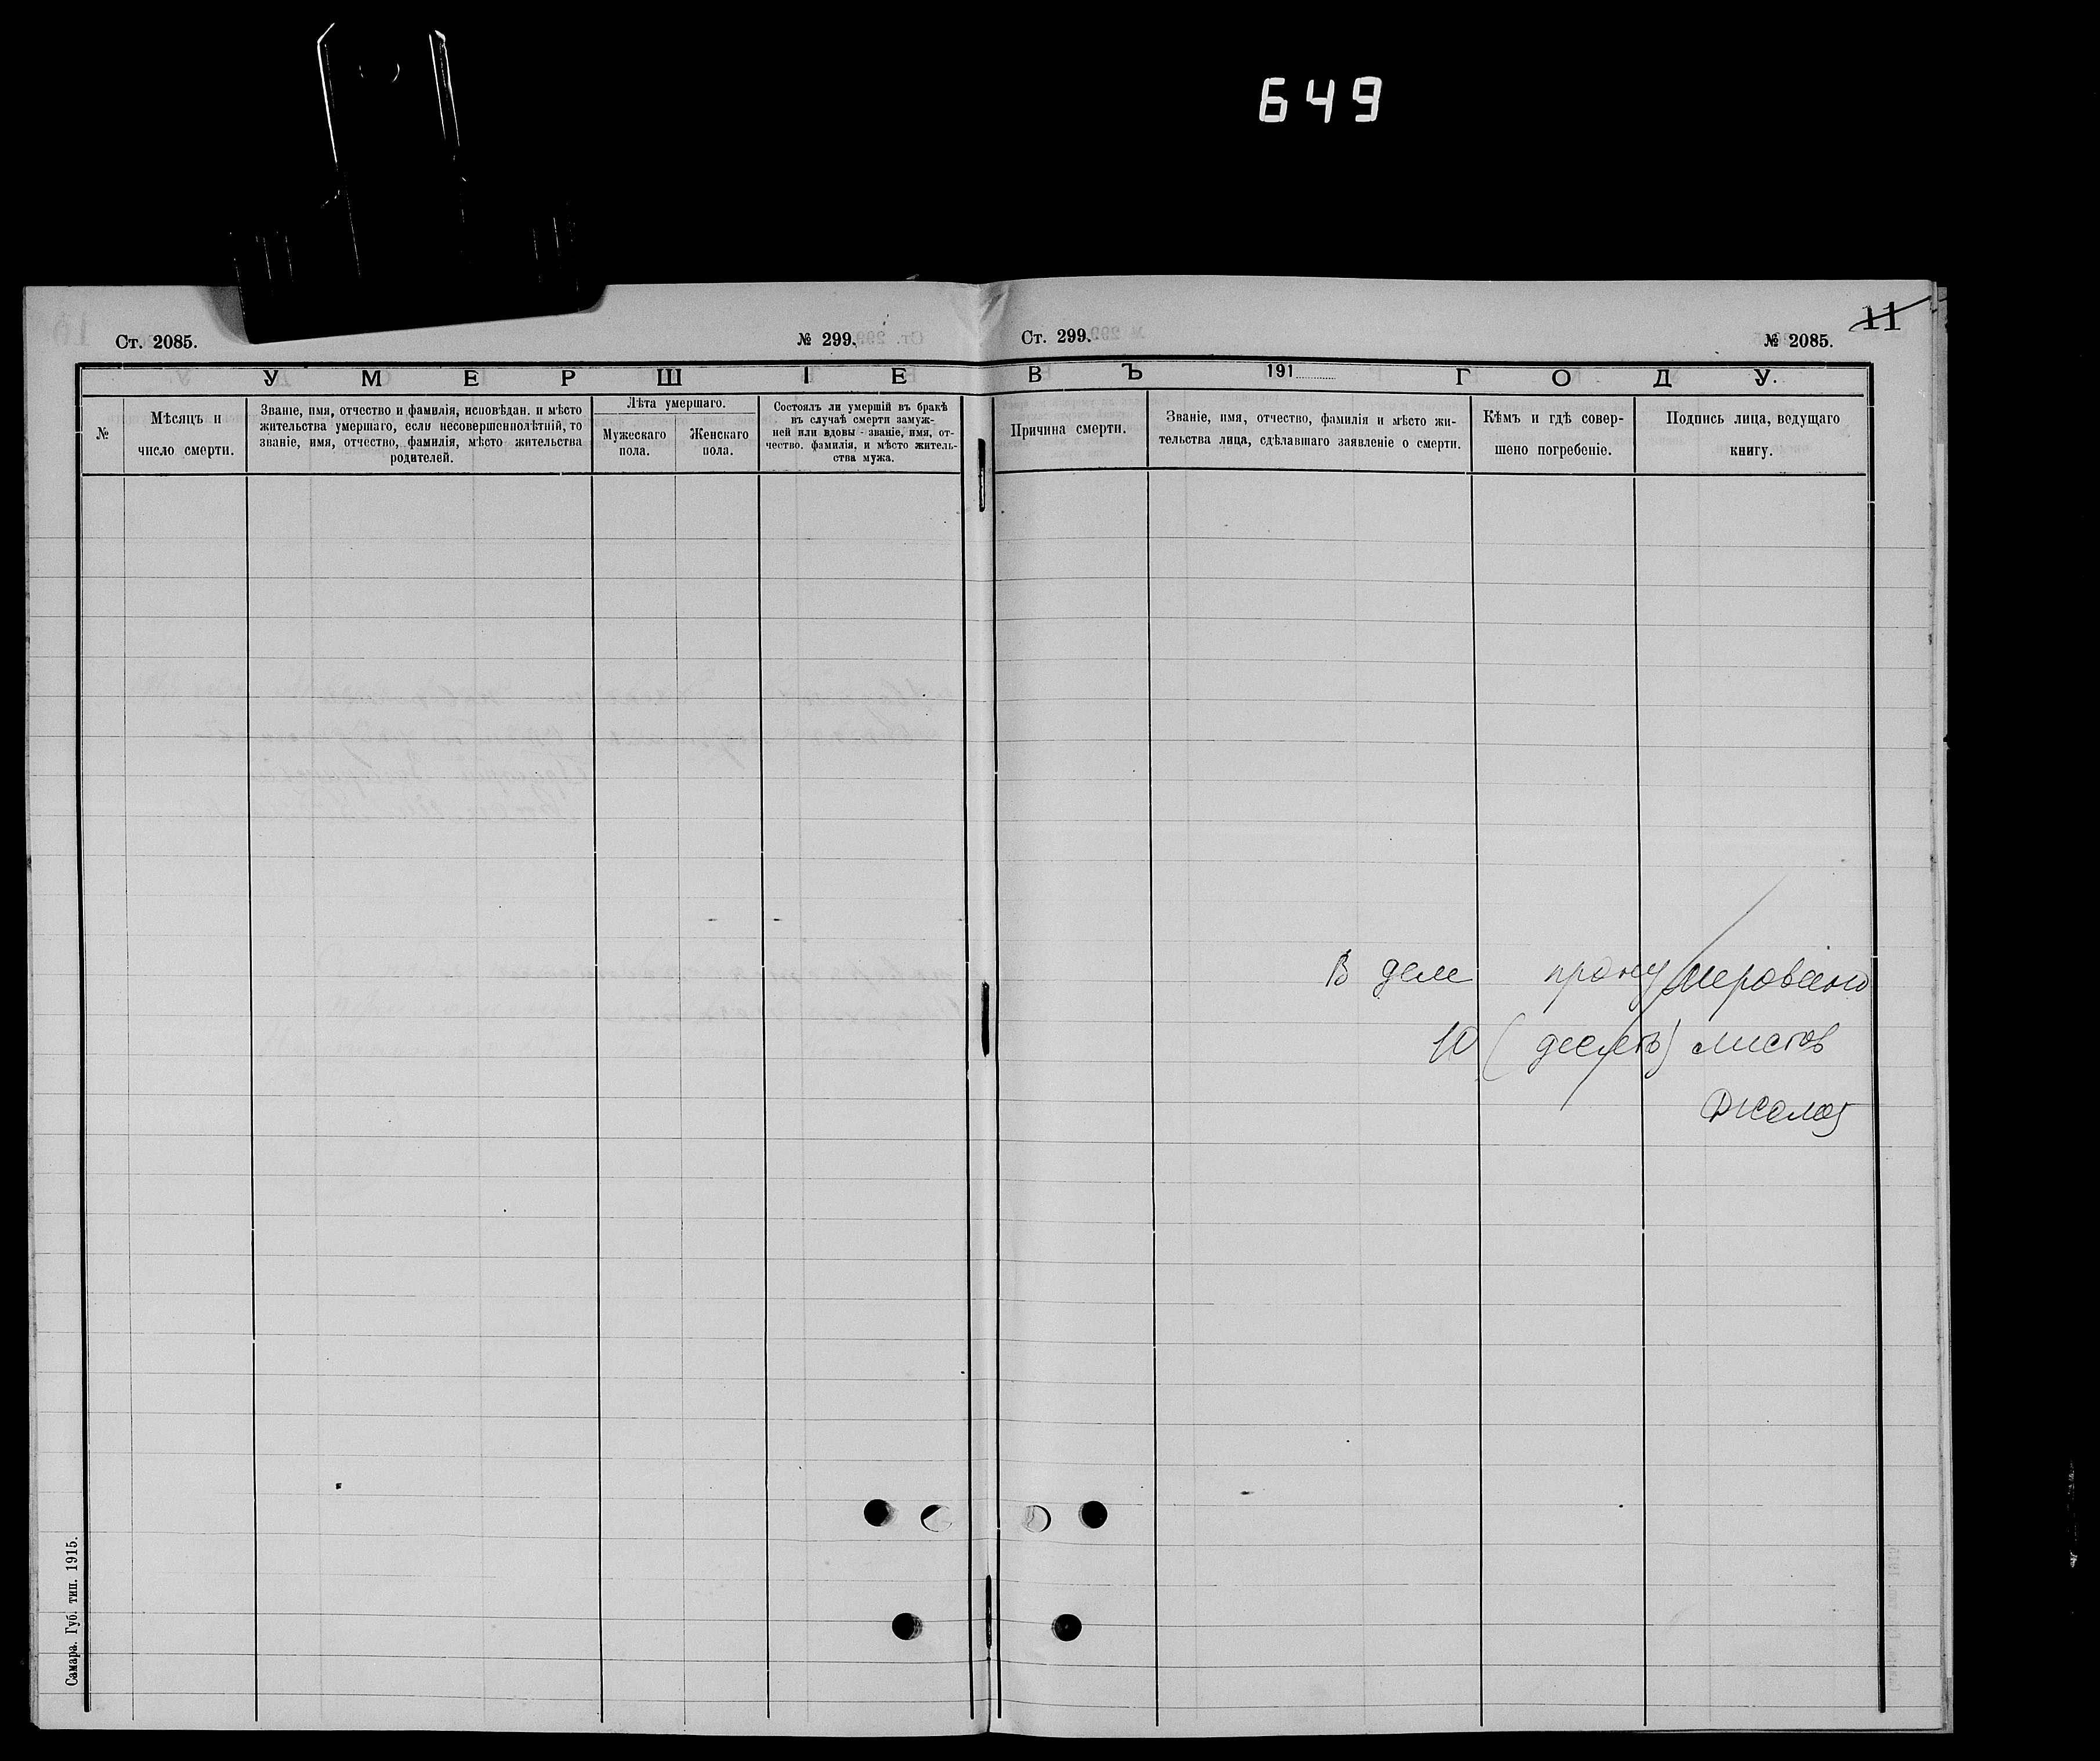 649
11
Ст. 2085.
№ 299.
Ст. 299.
№ 2085.
УМЕРШІЕ ВЪ 191 ГОДУ.
№
Мѣсяцъ и
число смерти.
Званіе, имя, отчество и фамилія, исповѣдан. и мѣсто
жительства умершаго, если несовершеннолѣтній, то
званіе, имя, отчество, фамилія, мѣсто жительства
родителей.
Лѣта умершаго.
Мужескаго
пола.
Женскаго
пола.
Состоялъ ли умершій въ бракѣ
въ случаѣ смерти замуж-
ней или вдовы - званіе, имя, от-
чество. фамилія, и мѣсто житель-
ства мужа.
Причина смерти.
Званіе, имя, отчество, фамилія и мѣсто жи-
тельства лица, сдѣлавшаго заявленіе о смерти.
Кѣмъ и гдѣ совер-
шено погребеніе.
Подпись лица, ведущаго
книгу.
В деле пронумеровано
10 (десять) листов
Самара. Губ. тип. 1915.